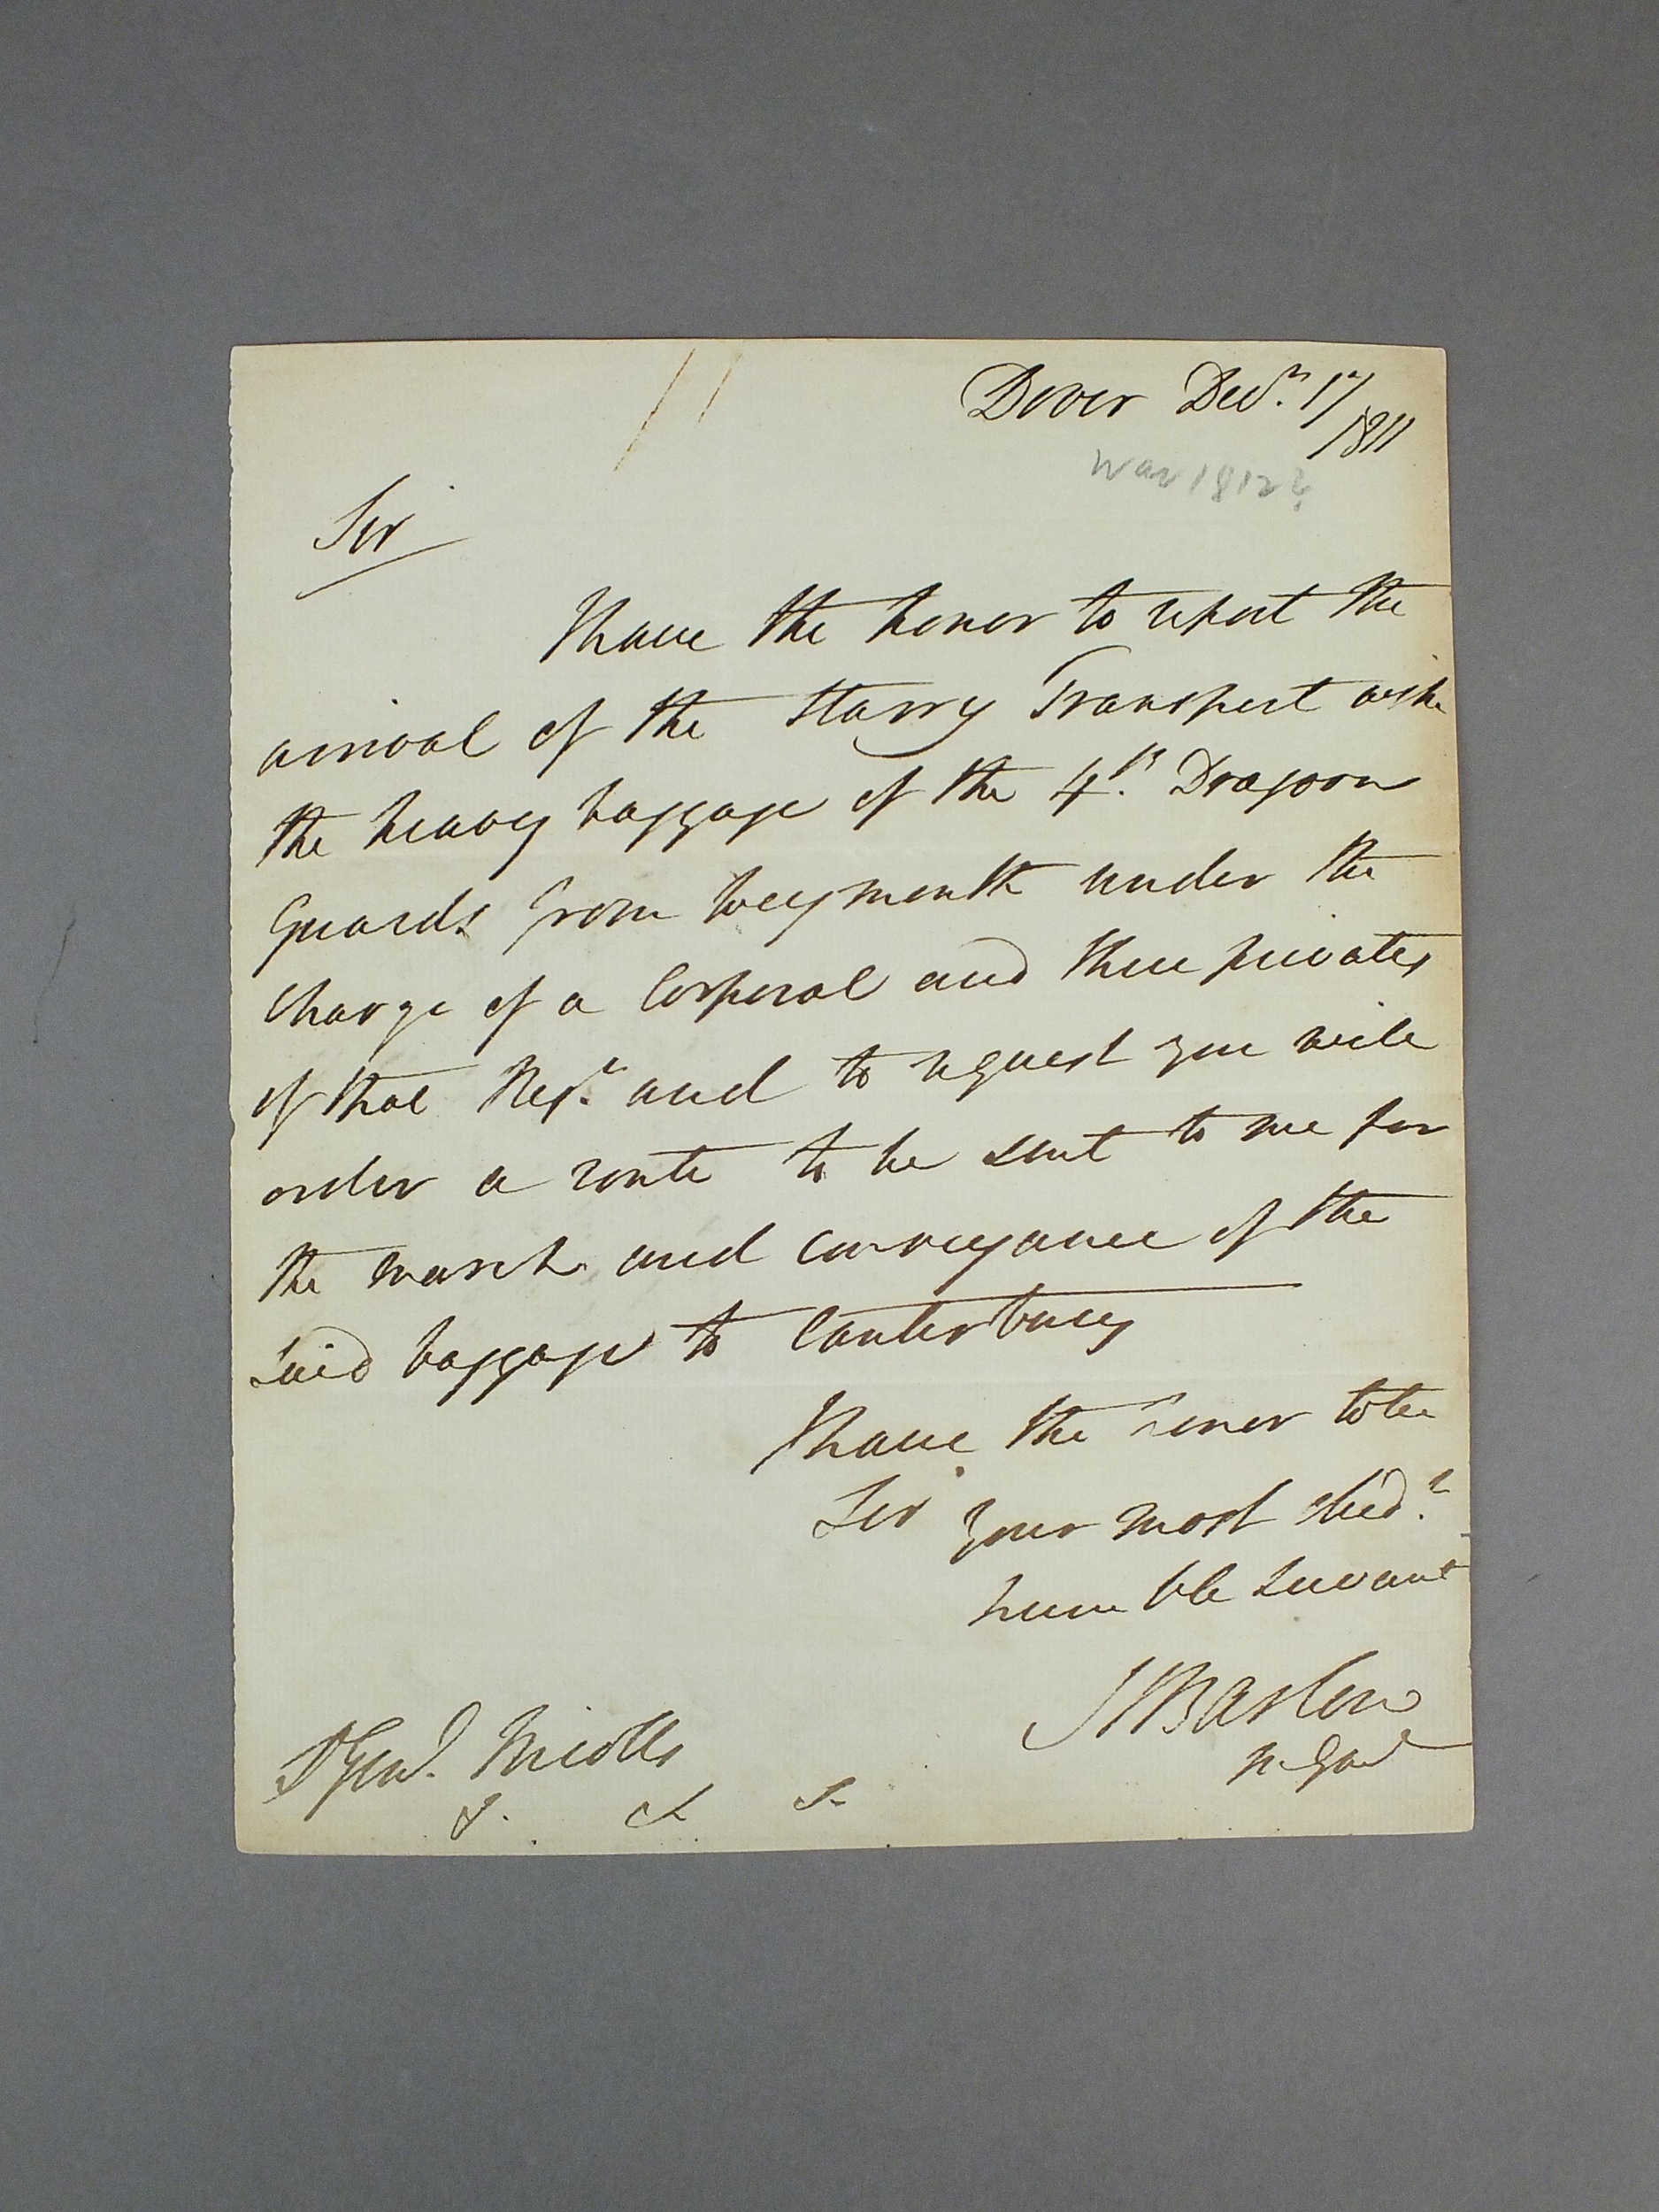 Dover Decr. 17
1811
War 1812?
Sir
I have the honor to report the
arrival of the Harry Transport with
the heavy baggage of the 4th. Dragoon
Guards from Weymouth under the
Charge of a Corporal and three privates
of that Regt. and to request you will
order a route to be sent to me for
the march and conveyance of the
said baggage to Canterbury
I have the honor to be
Sir your most obedt.
humble Servant
Barlow
Genl. Nicolls